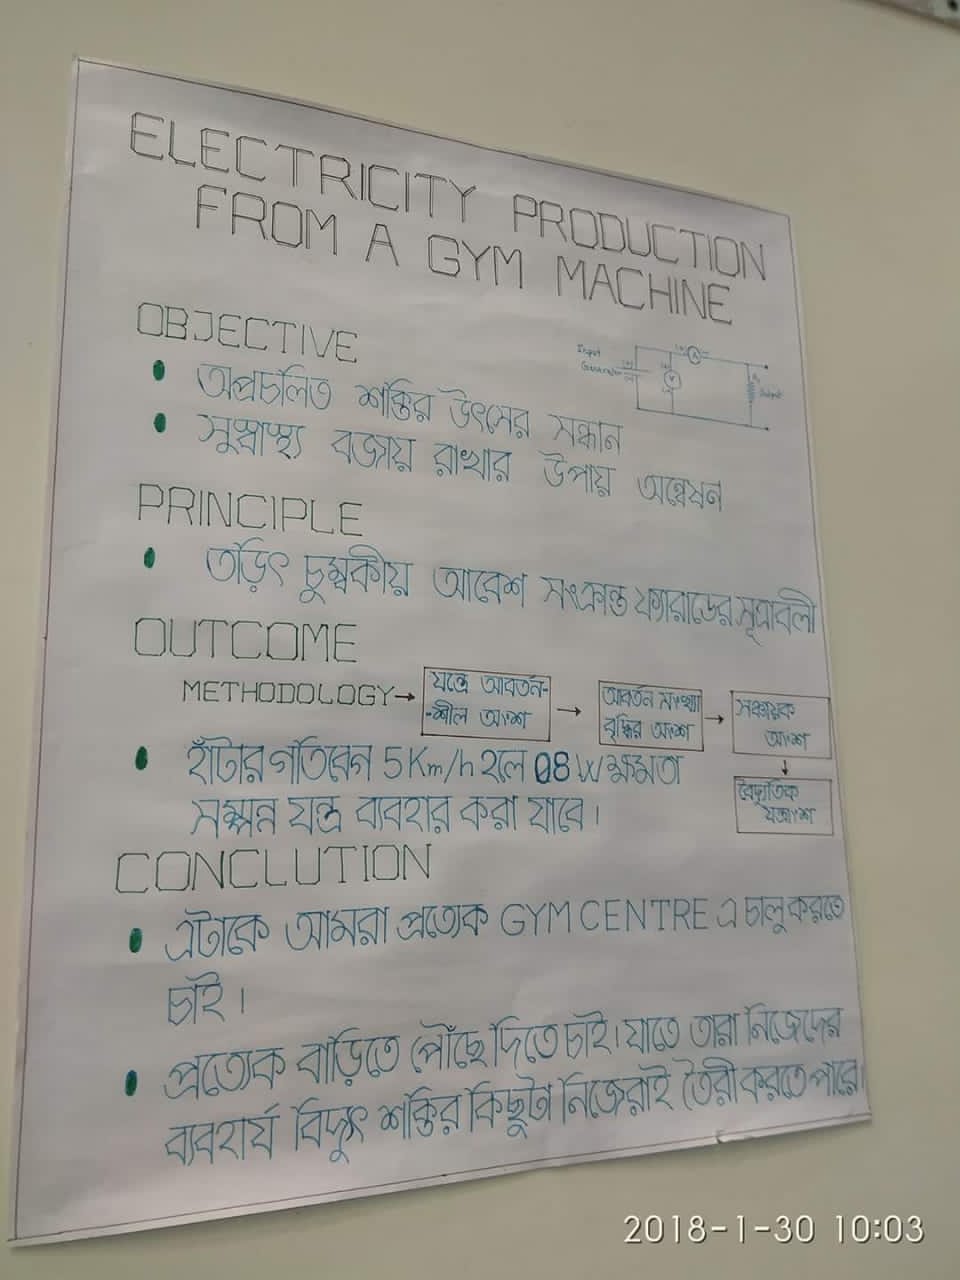 ELECTRICITY PRODUCTION
FROM A GYM MACHINE
OBJECTIVE
Input
Output
• অপ্রচলিত শক্তির উৎসের সন্ধান
• সুস্বাস্থ্য বজায় রাখার উপায় অন্বেষন
PRINCIPLE
• তড়িৎ চুম্বকীয় আবেশ সংক্রান্ত ফ্যারাডের সূত্রাবলী
OUTCOME
METHODOLOGY→
যন্ত্রে আবর্তন-
-শীল অংশ
→
আবর্তন সংখ্যা
বৃদ্ধির অংশ
→
সঞ্চায়ক
অংশ
↓
বৈদ্যুতিক
যন্ত্রাংশ
• হাঁটার গতিবেগ 5 Km/h হলে 08 W ক্ষমতা
সম্পন্ন যন্ত্র ব্যবহার করা যাবে।
CONCLUTION
• এটাকে আমরা প্রত্যেক GYM CENTRE এ চালু করতে
চাই।
• প্রত্যেক বাড়িতে পৌঁছে দিতে চাই। যাতে তারা নিজেদের
ব্যবহার্য বিদ্যুৎ শক্তির কিছুটা নিজেরাই তৈরী করতে পারে।
2018-1-30 10:03